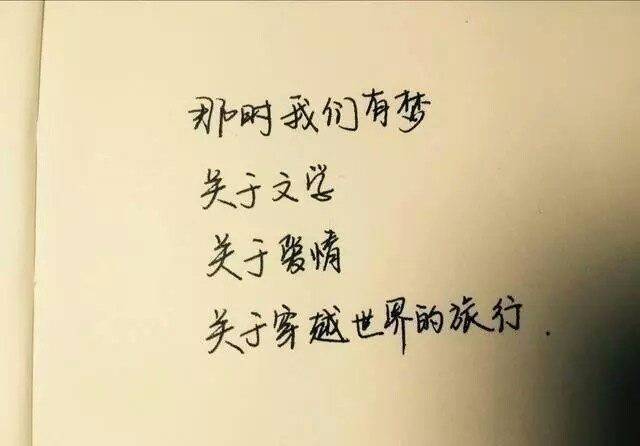 那时我们有梦
关于文学
关于爱情
关于穿越世界的旅行.